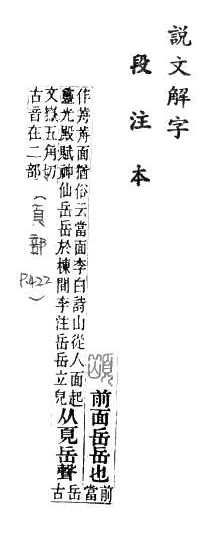 說文解字
段注本
前面岳岳也前當
作歬歬面猶俗云當面李白詩山從人面起
靈光殿賦神仙岳岳於棟間李注岳岳立皃从頁岳聲岳古
文嶽五角切
古音在二部
(頁部 P.422)